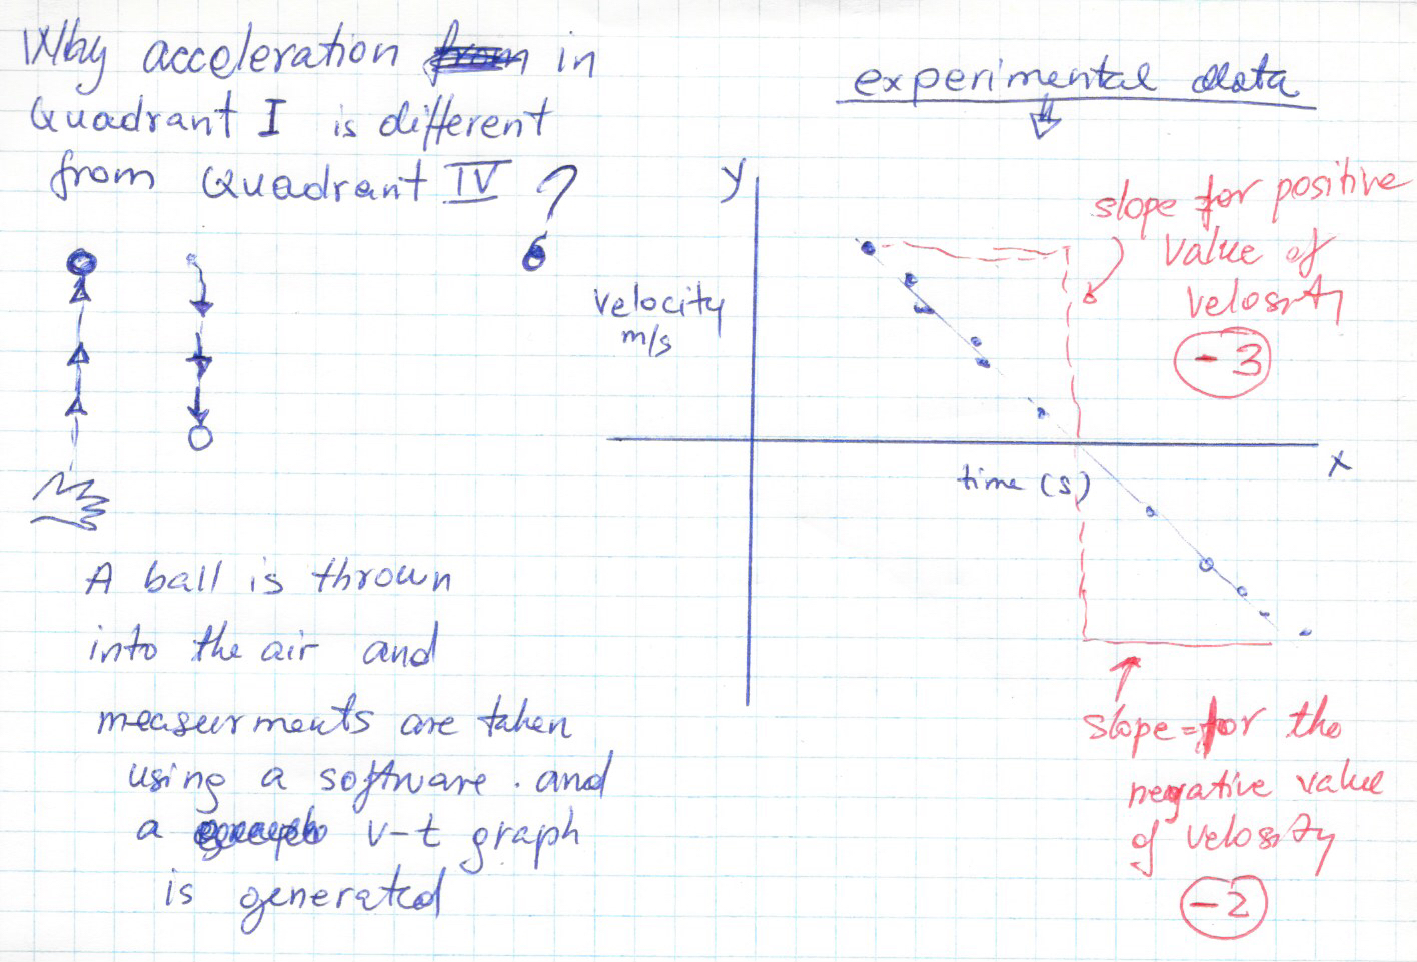 Why acceleration from in
Quadrant I is different
from Quadrant IV ?
experimental data
y
velocity
m/s
x
time (s)
slope for positive
value of
velosity
-3
slope = for the
negative value
of velosity
-2
A ball is thrown
into the air and
measurments are taken
using a software . and
a v-t graph
is generated